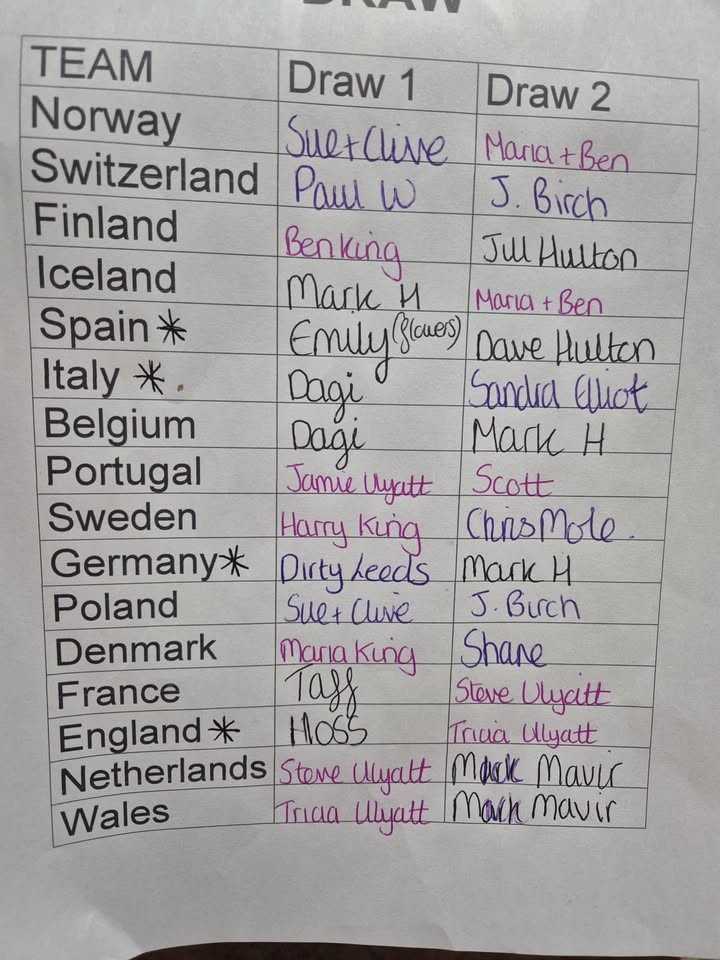 DRAW
TEAM Draw 1 Draw 2
Norway Sue + Clive Maria + Ben
Switzerland Paul W J. Birch
Finland Ben King Jill Hulton
Iceland Mark H Maria + Ben
Spain * Emily (flowers) Dave Hulton
Italy * . Dagi Sandra Elliot
Belgium Dagi Mark H
Portugal Jamie Wyatt Scott
Sweden Harry King Chris Mole.
Germany * Dirty Leeds Mark H
Poland Sue + Clive J. Birch
Denmark Maria King Shane
France Taff Steve Wyatt
England * Hoss Tricia Wyatt
Netherlands Steve Wyatt Mark Mavir
Wales Tricia Wyatt Mark Mavir